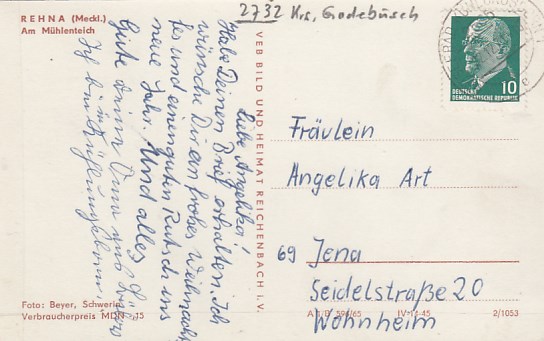 REHNA (Meckl.)
Am Mühlenteich
2732 Krs. Gadebusch
10
DEUTSCHE
DEMOKRATISCHE REPUBLIK
Liebe Angelika!
Habe Deinen Brief erhalten. Ich
wünsche Dir ein frohes Weihnach
tes und einen guten Rutsch ins
neue Jahr. Und alles
Gute
Ich bin
VEB BILD UND HEIMAT REICHENBACH i. V.
Fräulein
Angelika Art
69 Jena
Seidelstraße 20
Wohnheim
Foto: Beyer, Schwerin
Verbraucherpreis MDN -,15
A 1/B 594/65 IV-14-45 2/1053